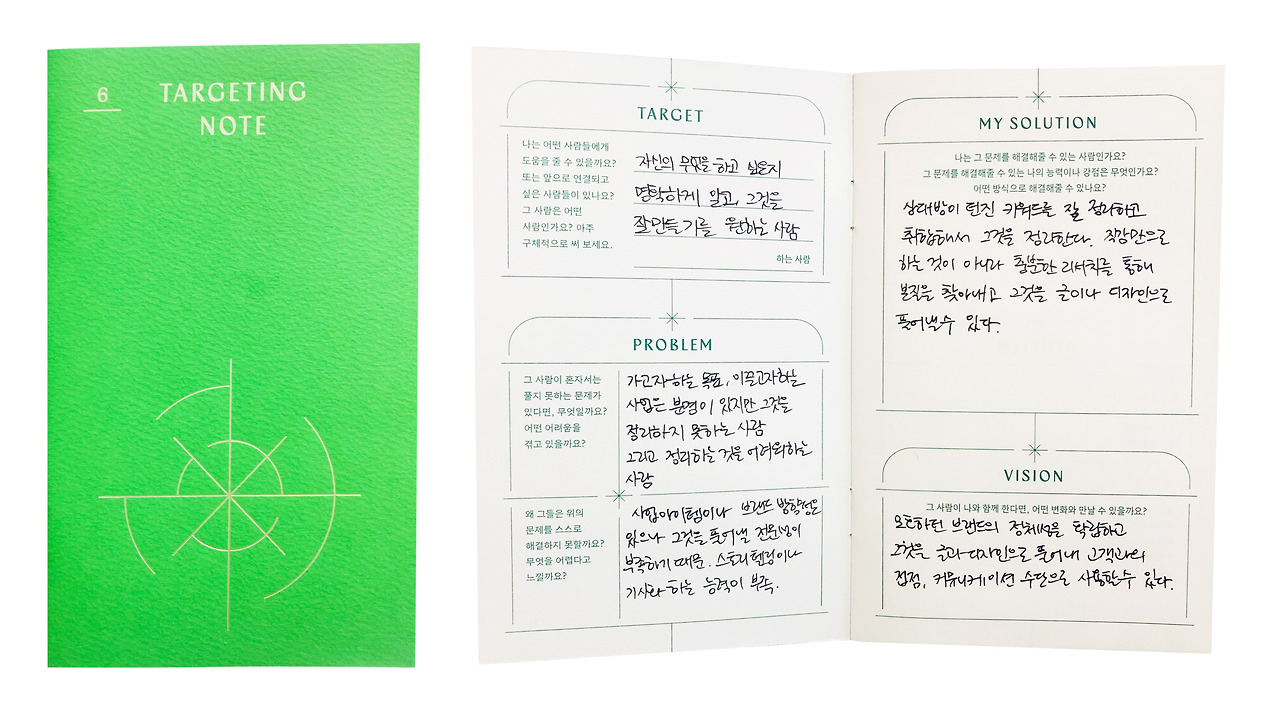 6
TARGETING
NOTE
TARGET
나는 어떤 사람들에게
도움을 줄 수 있을까요?
또는 앞으로 연결되고
싶은 사람들이 있나요?
그 사람은 어떤
사람인가요? 아주
구체적으로 써 보세요.
자신의 무엇을 하고 싶은지
명확하게 알고, 그것을
잘 만들기를 원하는 사람
하는 사람
PROBLEM
그 사람이 혼자서는
풀지 못하는 문제가
있다면, 무엇일까요?
어떤 어려움을
겪고 있을까요?
가고자 하는 목표, 이끌고자 하는
사업은 분명이 있지만 그것을
정리하지 못하는 사람
그리고 정리하는 것을 어려워하는
사람
왜 그들은 위의
문제를 스스로
해결하지 못할까요?
무엇을 어렵다고
느낄까요?
사업아이템이나 브랜드 방향성은
있으나 그것을 풀어낼 전문성이
부족하기 때문. 스토리텔링이나
기사화 하는 능력이 부족.
MY SOLUTION
나는 그 문제를 해결해줄 수 있는 사람인가요?
그 문제를 해결해줄 수 있는 나의 능력이나 강점은 무엇인가요?
어떤 방식으로 해결해줄 수 있나요?
상대방이 던진 키워드를 잘 정리하고
취합해서 그것을 정리한다. 직감만으로
하는 것이 아니라 충분한 리서치를 통해
본질을 찾아내고 그것을 글이나 디자인으로
풀어낼 수 있다.
VISION
그 사람이 나와 함께 한다면, 어떤 변화와 만날 수 있을까요?
모호하던 브랜드의 정체성을 확립하고
그것을 글과 디자인으로 풀어내 고객과의
접점, 커뮤니케이션 수단으로 사용할 수 있다.